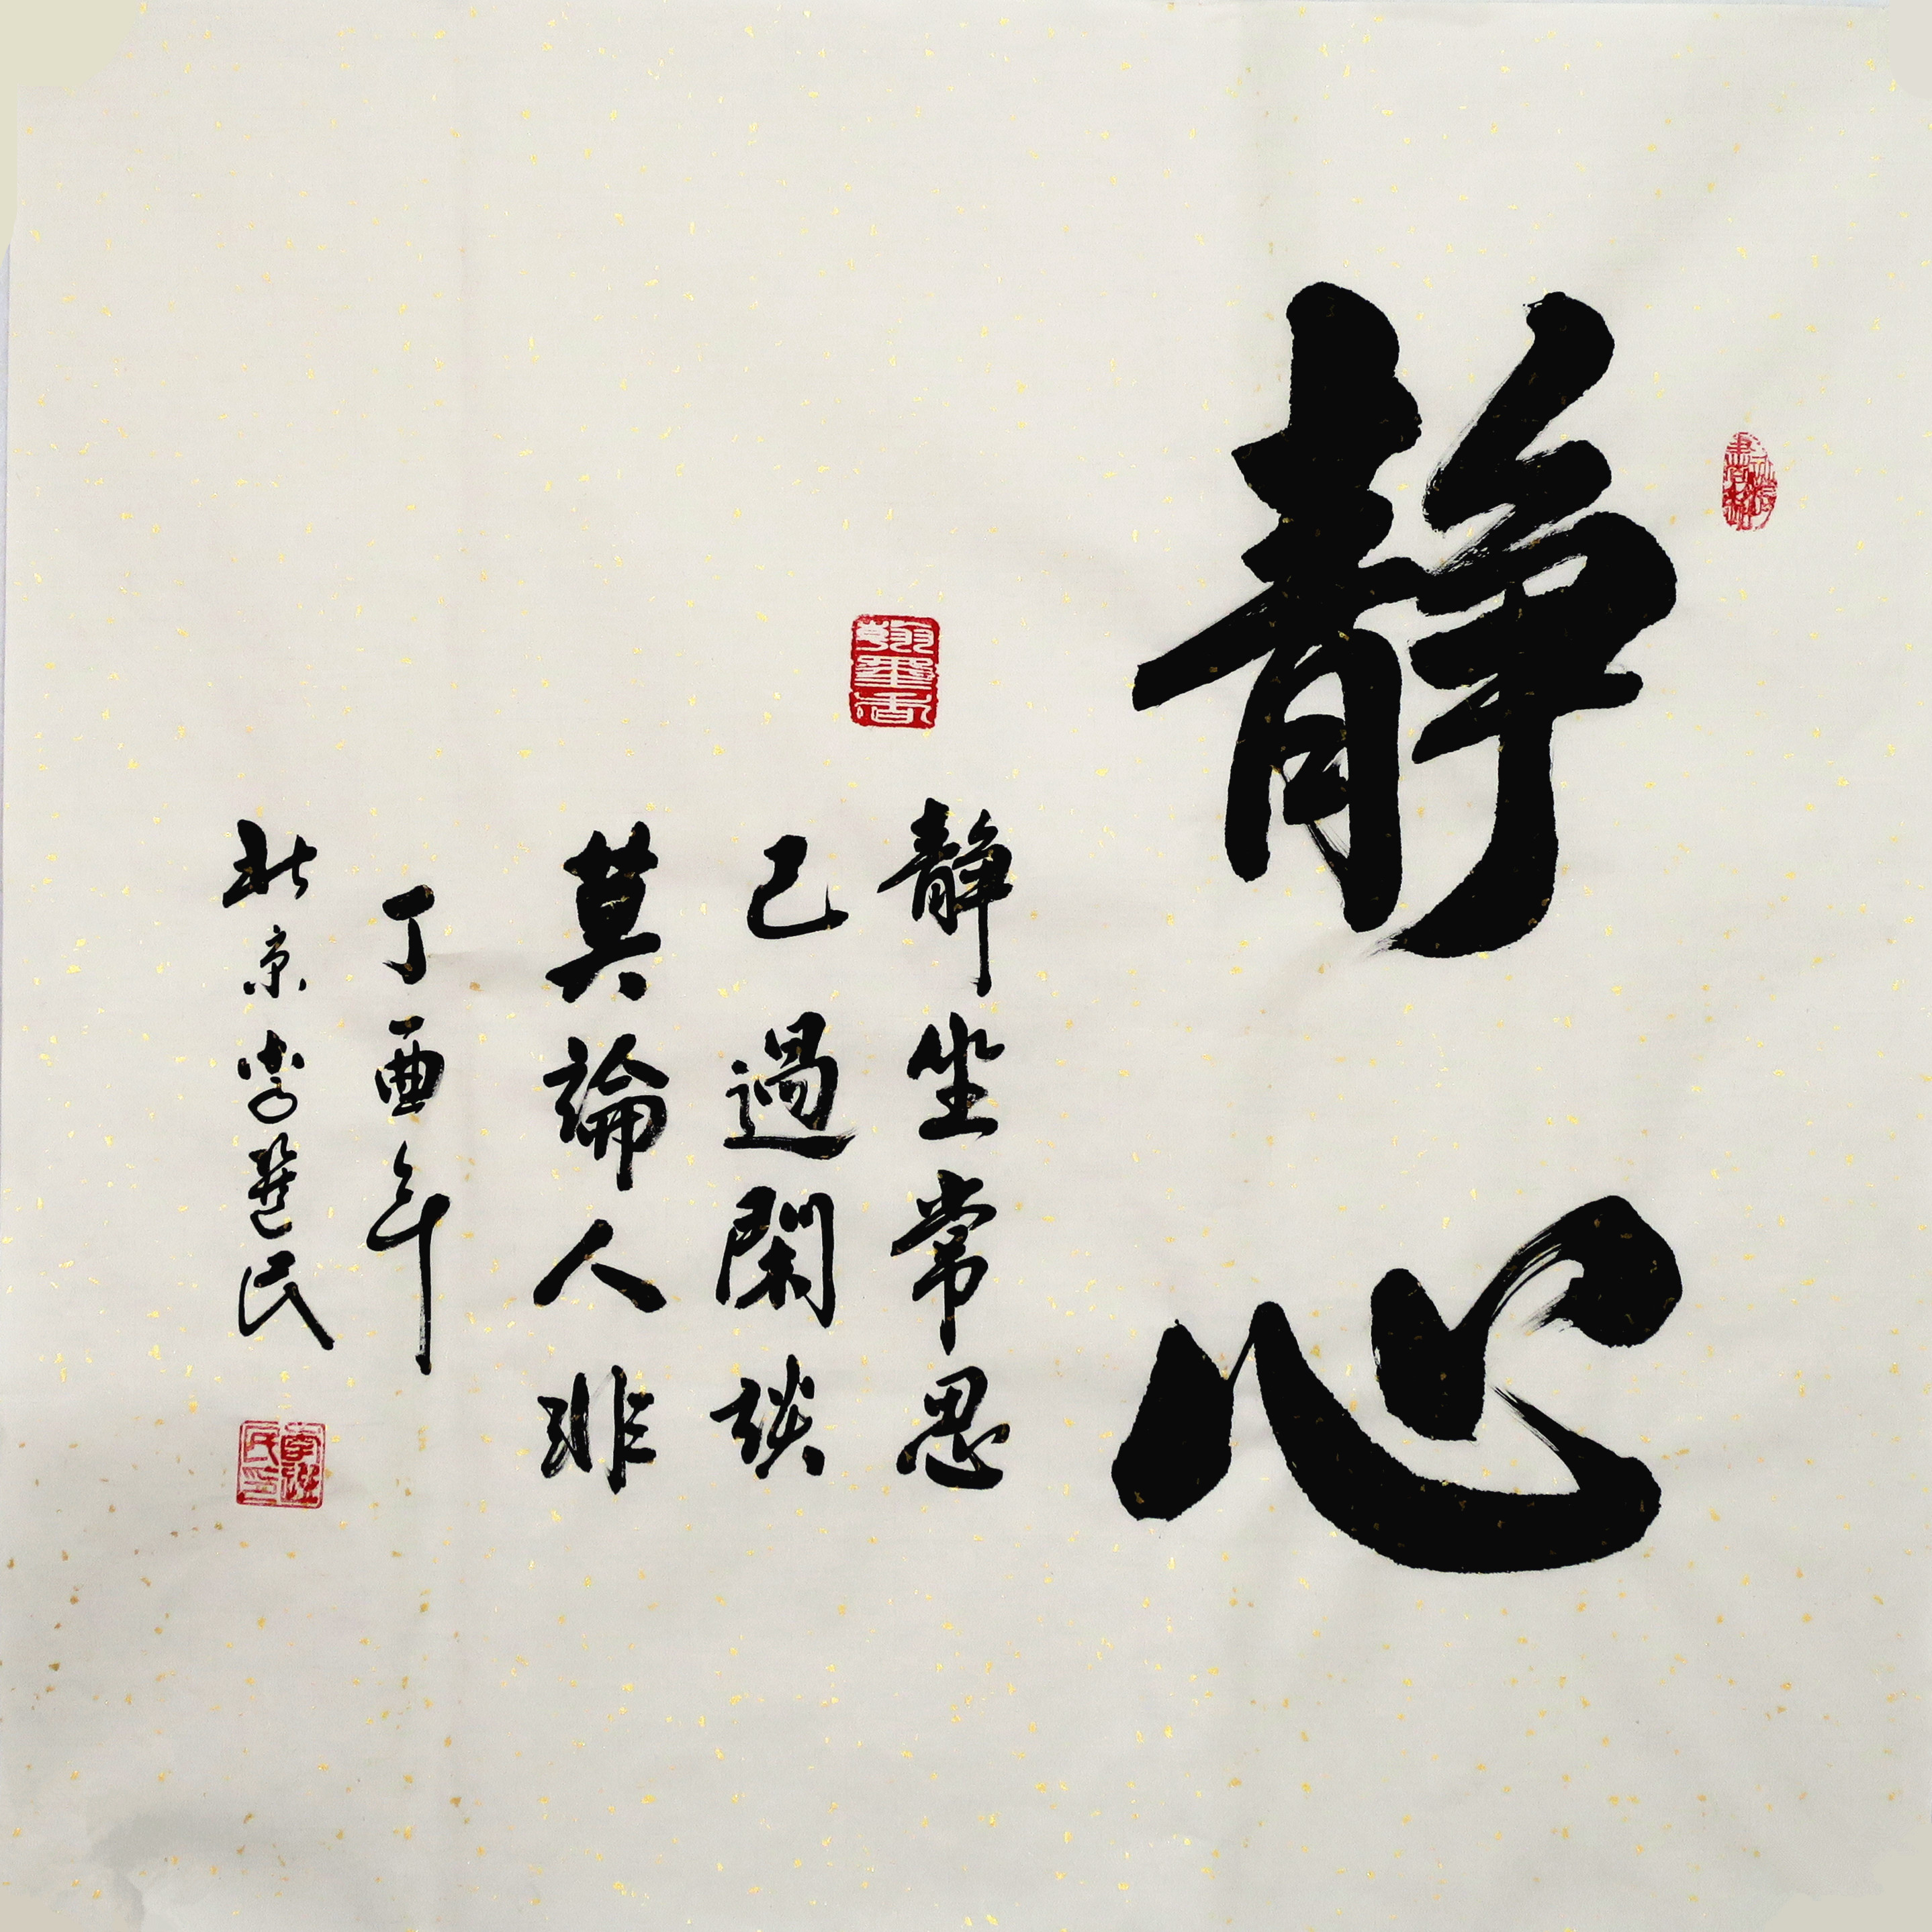 静心
静坐常思
己過閑談
莫論人非
丁酉年
北京李選民
翰墨香